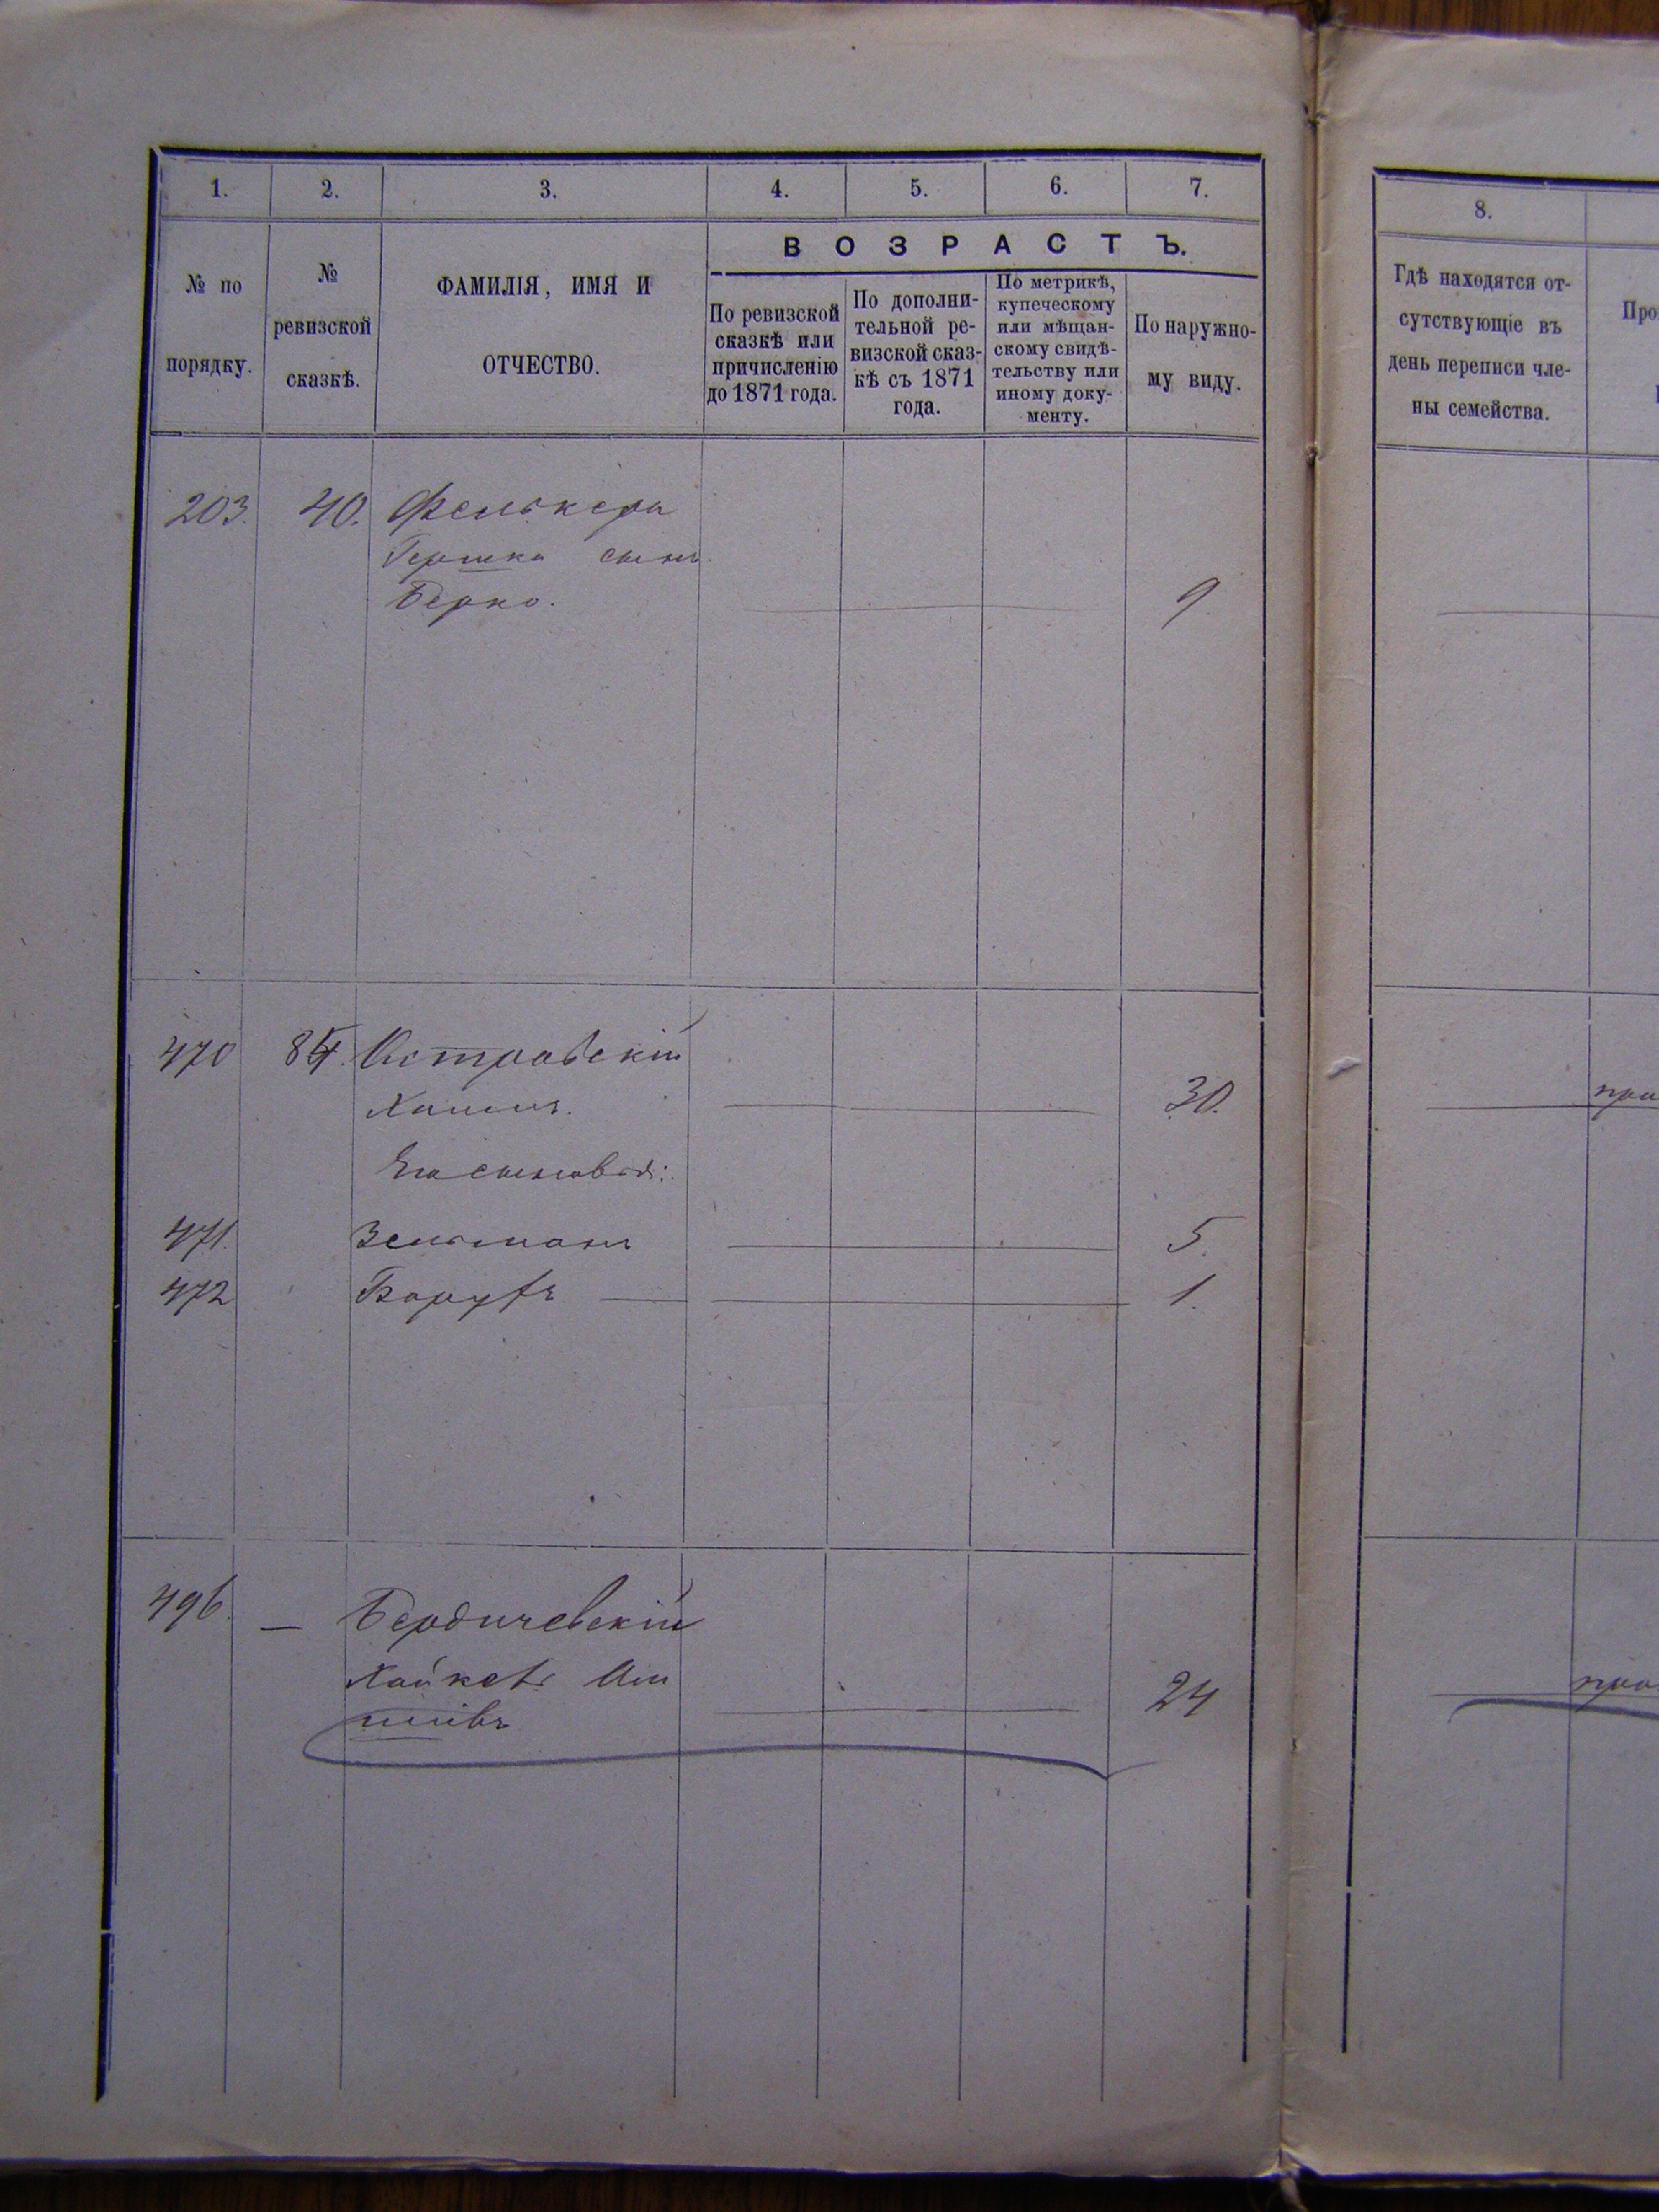 1.
2.
3.
4.
5.
6.
7.
№ по
порядку.
№
ревизской
сказкѣ.
ФАМИЛІЯ, ИМЯ И
ОТЧЕСТВО.
ВОЗРАСТЪ.
По ревизской
сказкѣ или
причисленію
до 1871 года.
По дополни-
тельной ре-
визской сказ-
кѣ съ 1871
года.
По метрикѣ,
купеческому
или мѣщан-
скому свидѣ-
тельству или
иному доку-
менту.
По наружно-
му виду.
203. 40. Фелькера
Гершка сынъ
Берко. 9.
470 84. Островскій
30.
Его сыновья:
471. Зельманъ 5.
472 Борухъ 1.
496. — Бердичевскій
Хайкель
24
8.
Гдѣ находятся от-
сутствующіе въ
день переписи чле-
ны семейства.
Про
при
при